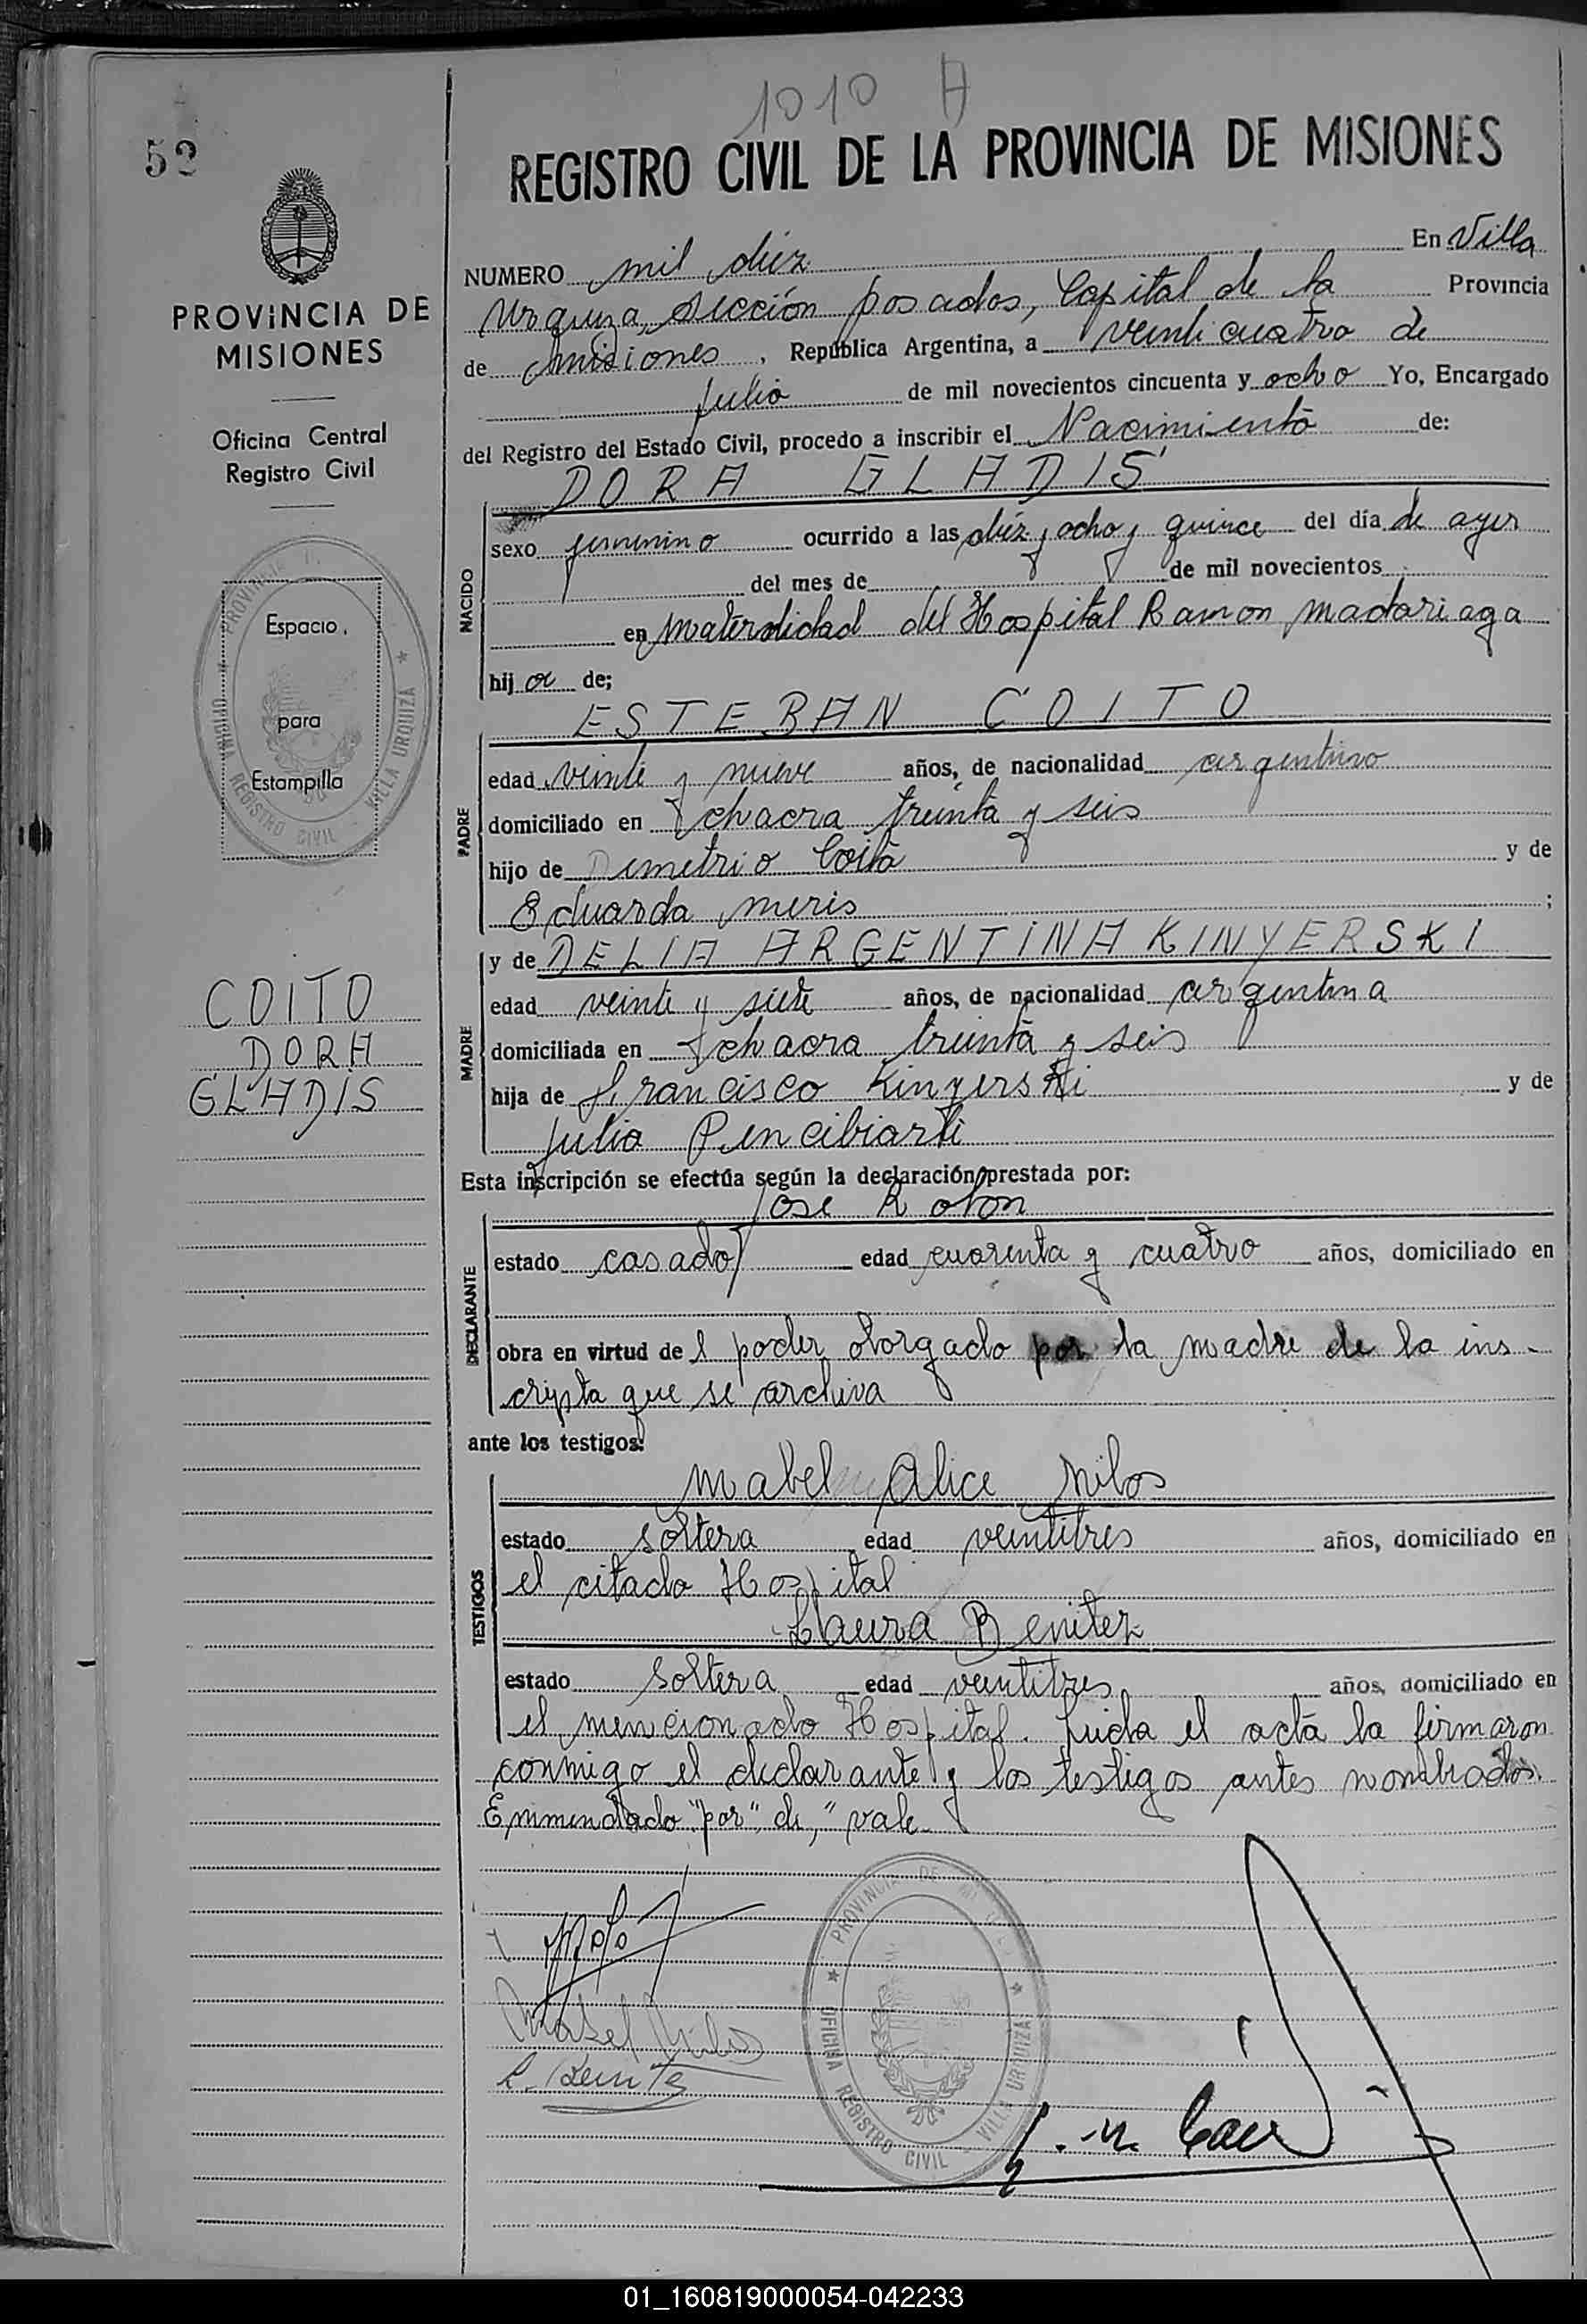 1010 A
52
REGISTRO CIVIL DE LA PROVINCIA DE MISIONES
PROVINCIA DE
MISIONES
Oficina Central
Registro Civil
Espacio
para
Estampilla
PROVINCIA
OFICINA REGISTRO CIVIL - VILLA URQUIZA
COITO
DORA
GLADIS
NUMERO mil diez En Villa
Urquiza, sección posadas, Capital de la Provincia
de misiones, República Argentina, a veinticuatro de
julio de mil novecientos cincuenta y ocho Yo, Encargado
del Registro del Estado Civil, procedo a inscribir el Nacimiento de:
DORA GLADIS
NACIDO
sexo femenino ocurrido a las diez y ocho y quince del día de ayer
del mes de de mil novecientos
en maternidad del Hospital Ramon madariaga
hija de;
ESTEBAN COITO
PADRE
edad veinte y nueve años, de nacionalidad argentino
domiciliado en chacra treinta y seis
hijo de Demetrio Coito y de
Eduarda meris ;
y de DELIA ARGENTINA KINYERSKI
MADRE
edad veinte y siete años, de nacionalidad argentina
domiciliada en chacra treinta y seis
hija de Francisco Kinyerski y de
Julia Pencibiarti
Esta inscripción se efectúa según la declaración prestada por:
Jose Rolon
DECLARANTE
estado casado edad cuarenta y cuatro años, domiciliado en
obra en virtud del poder otorgado por la madre de la ins-
cripta que se archiva
ante los testigos:
Mabel Alice Milos
TESTIGOS
estado soltera edad veintitres años, domiciliado en
el citado Hospital
Laura Benitez
estado soltera edad veintitres años, domiciliado en
el mencionado Hospital. Leida el acta la firmaron
conmigo el declarante y los testigos antes nombrados.
Enmendado "por", de," vale
Mabel Milos
L. Benitez
PROVINCIA DE MISIONES
OFICINA REGISTRO CIVIL - VILLA URQUIZA
01_160819000054-042233